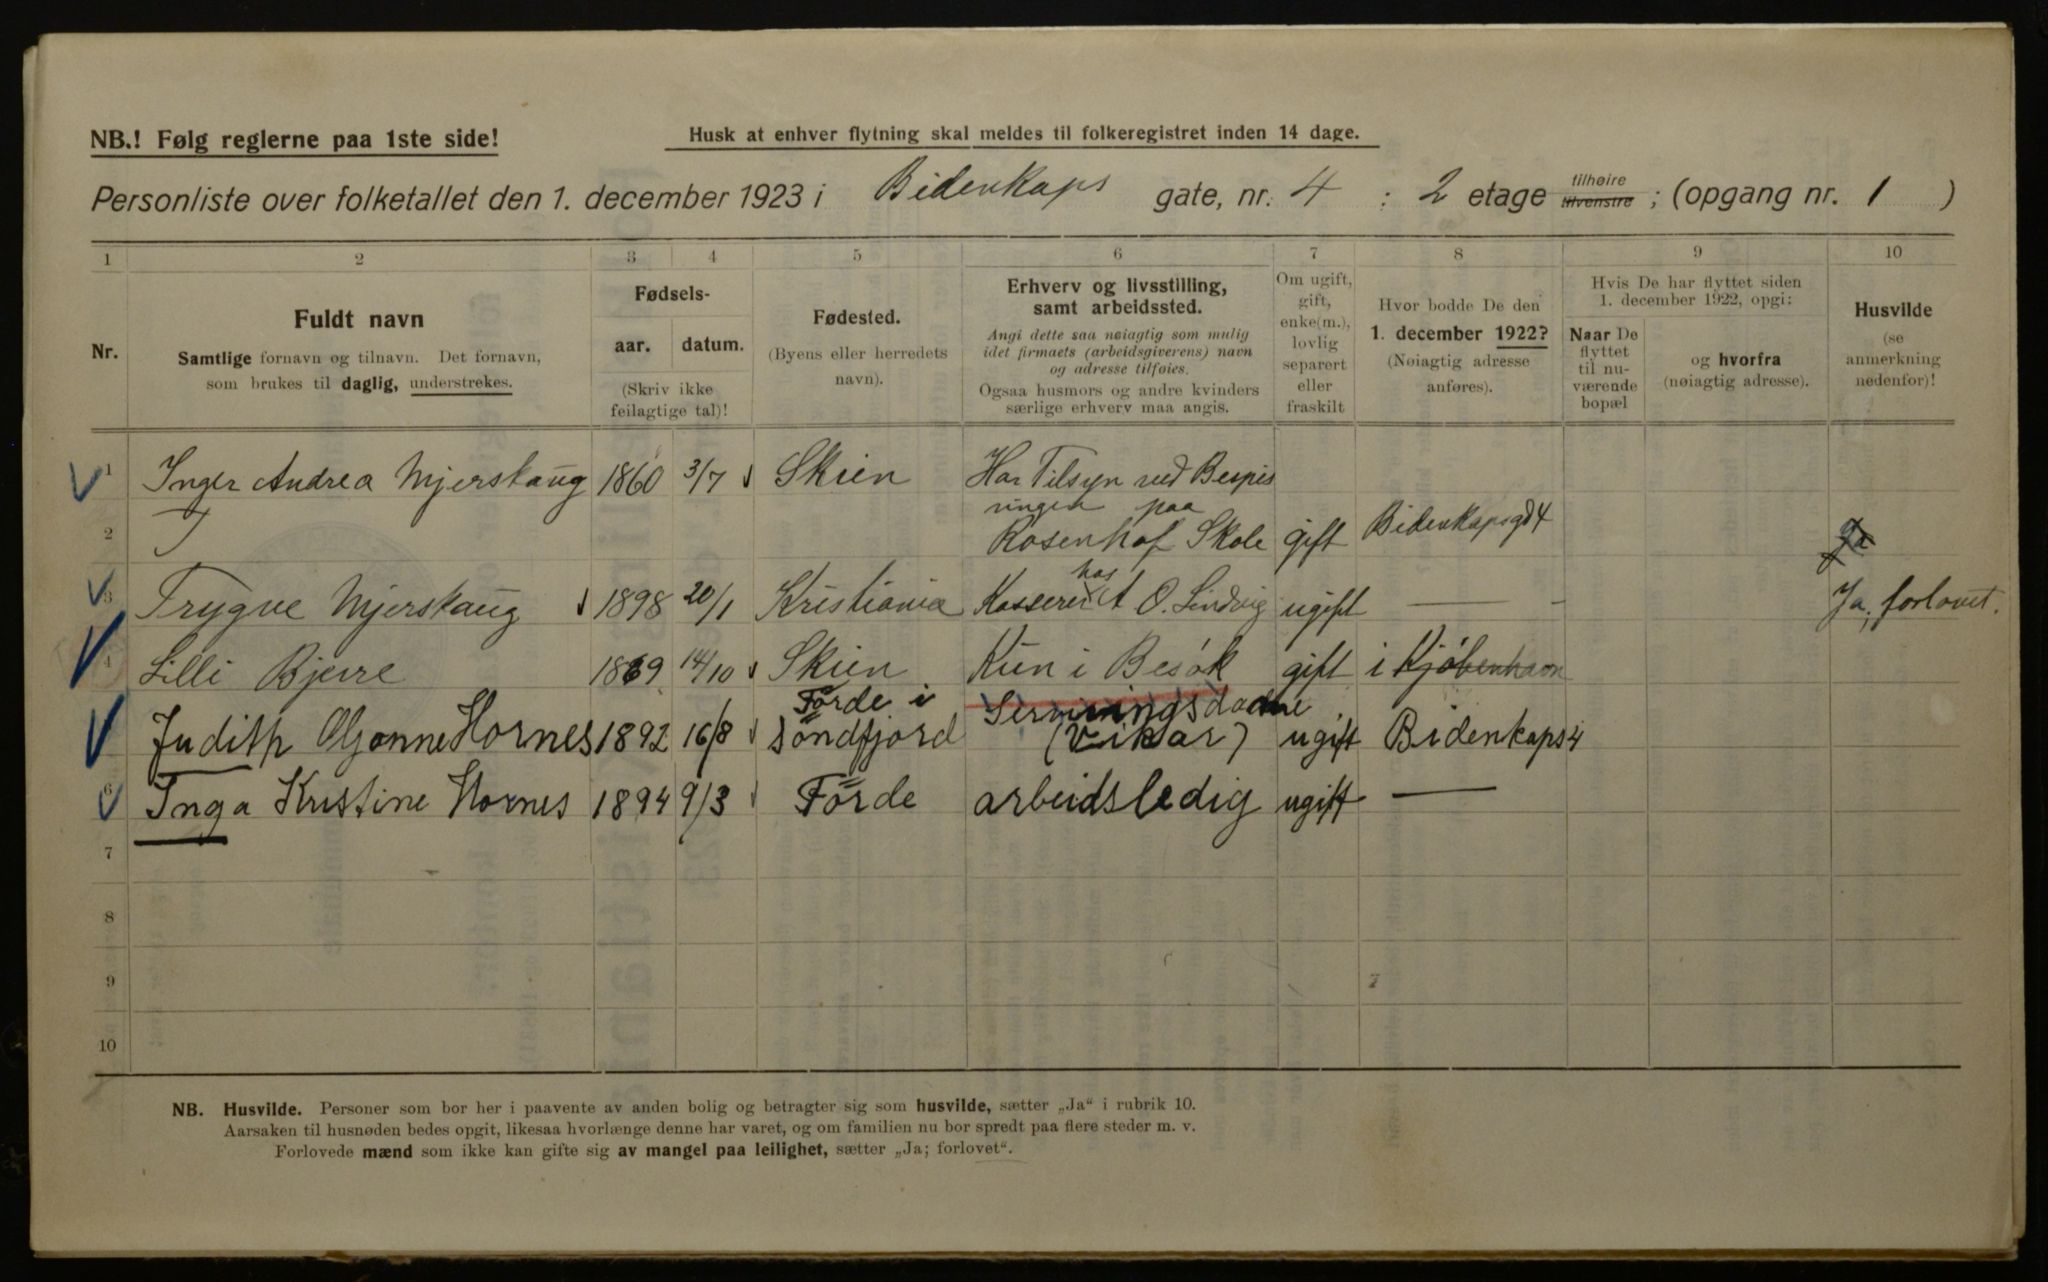 NB.! Følg reglerne paa 1ste side!
Husk at enhver flytning skal meldes til folkeregistret inden 14 dage.
Personliste over folketallet den 1. december 1923 i Bidenkaps gate, nr. 4 : 2 etage tilhøire tilvenstre ; (opgang nr. 1 )
1 2 3 4 5 6 7 8 9 10
Nr.
Fuldt navn
Samtlige fornavn og tilnavn. Det fornavn,
som brukes til daglig, understrekes.
Fødsels-
aar. datum.
(Skriv ikke
feilagtige tal)!
Fødested.
(Byens eller herredets
navn).
Erhverv og livsstilling,
samt arbeidssted.
Angi dette saa nøiagtig som mulig
idet firmaets (arbeidsgiverens) navn
og adresse tilføies.
Ogsaa husmors og andre kvinders
særlige erhverv maa angis.
Om ugift,
gift,
enke(m.),
lovlig
separert
eller
fraskilt
Hvor bodde De den
1. december 1922?
(Nøiagtig adresse
anføres).
Hvis De har flyttet siden
1. december 1922, opgi:
Naar De
flyttet
til nu-
værende
bopæl
og hvorfra
(nøiagtig adresse).
Husvilde
(se
anmerkning
nedenfor)!
1 Inger Andrea Mjerskaug 1860 3/7 Skien Har Tilsyn ved Bespis
ningen paa
2 Rosenhof Skole gift Bidenkapsgd 4 Ja
3 Trygve Mjerskaug 1898 20/1 Kristiania Kasserer hos A O. Lindvig ugift — Ja, forlovet.
4 Lilli Bjerre 1869 14/10 Skien Kun i Besøk gift i Kjøbenhavn
Judith Oljonne Hornes 1892 16/8 Førde i
Söndfjord
(Vikar) ugift Bidenkaps 4
6 Inga Kristine Hornes 1894 9/3 Förde arbeidsledig ugift —
7
8
9
10
NB. Husvilde. Personer som bor her i paavente av anden bolig og betragter sig som husvilde, sætter „Ja“ i rubrik 10.
Aarsaken til husnøden bedes opgit, likesaa hvorlænge denne har varet, og om familien nu bor spredt paa flere steder m. v.
Forlovede mænd som ikke kan gifte sig av mangel paa leilighet, sætter „Ja; forlovet“.